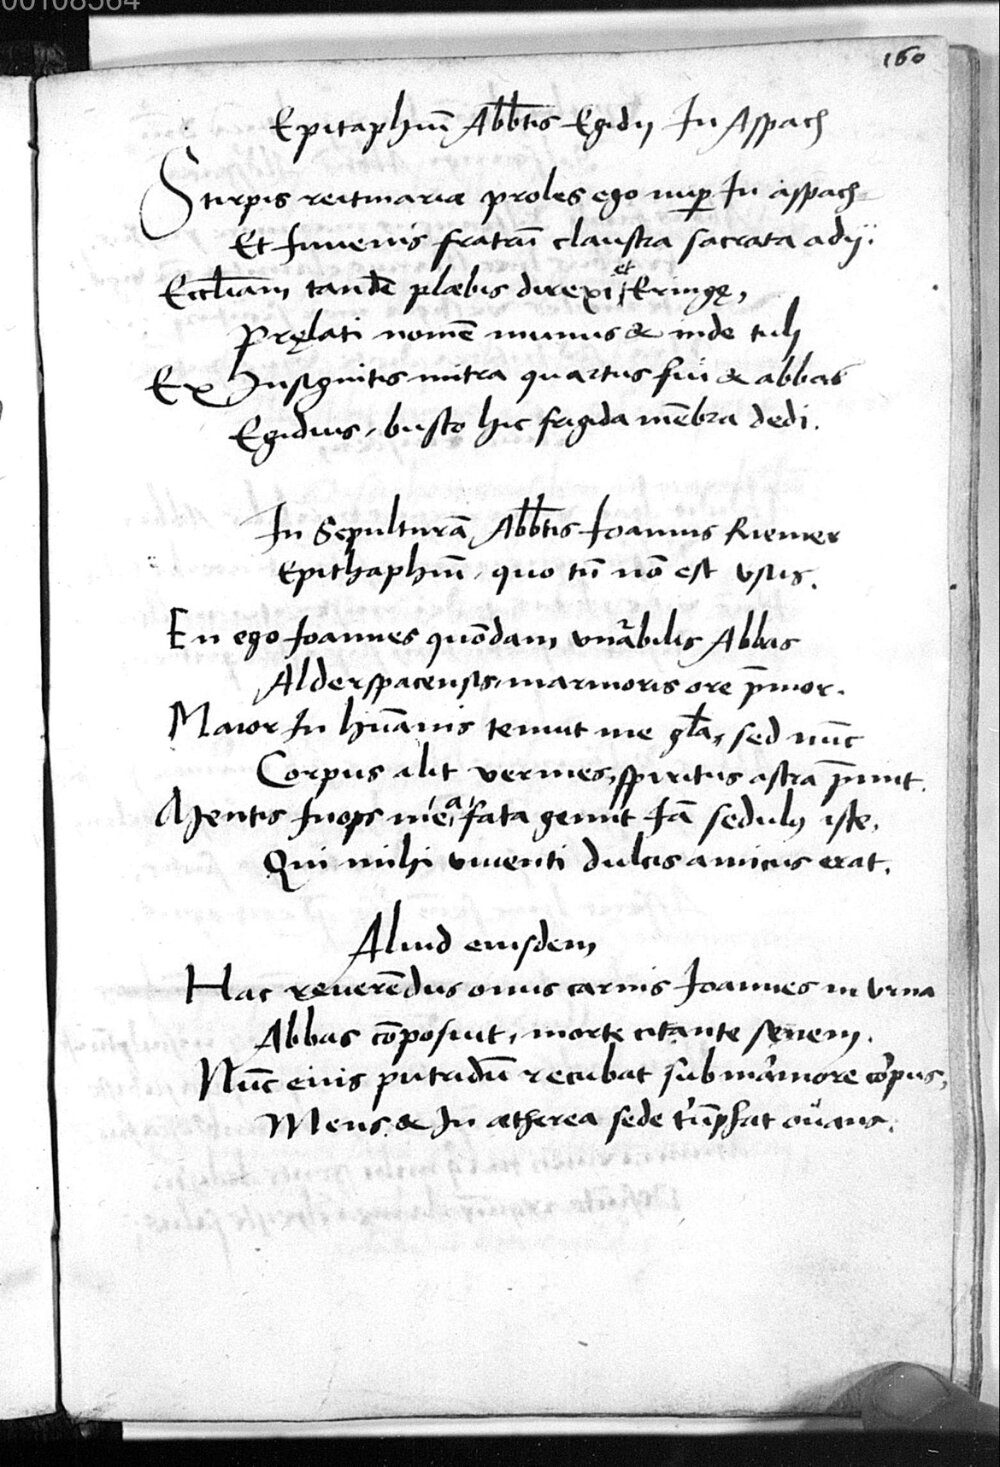 00108564
160
Epitaphiū Abb̄tis Egidij In Aspach
Stirpis reitmariæ proles ego nup̱ In aspach
Et Iuvenis fratrū claustra sacrata adij.
Eccl̄iam tandē plæbis direxi et Eringę,
Pręlati nomē munus & inde tulj
Ex Insignitis mitra quartus fui & abbas
Egidius, busto hic frigida mēbra dedi.
In Sepulturā Abb̄tis Ioannis Riemer
Epithaphiū, quo tū nō est vsus.
En ego Ioannes quōdam vn̄abilis Abbas
Alderspacensis, marmoris ore p̄mor.
Maior In hūanis tenuit me gl̄a, sed nūc
Corpus alit vermes, spiritus astra p̄mit.
Mentis Inops mea fata gemit Iā sedulus iste,
Qui mihi viventi dulcis amicus erat.
Aliud eiusdem
Hac reverēdus onus carnis Ioannes in vrna
Abbas cōposuit, morte citante senem.
Nūc eius putridū recubat sub marmore corpus,
Mens & In ætherea sede triūphat ouans.